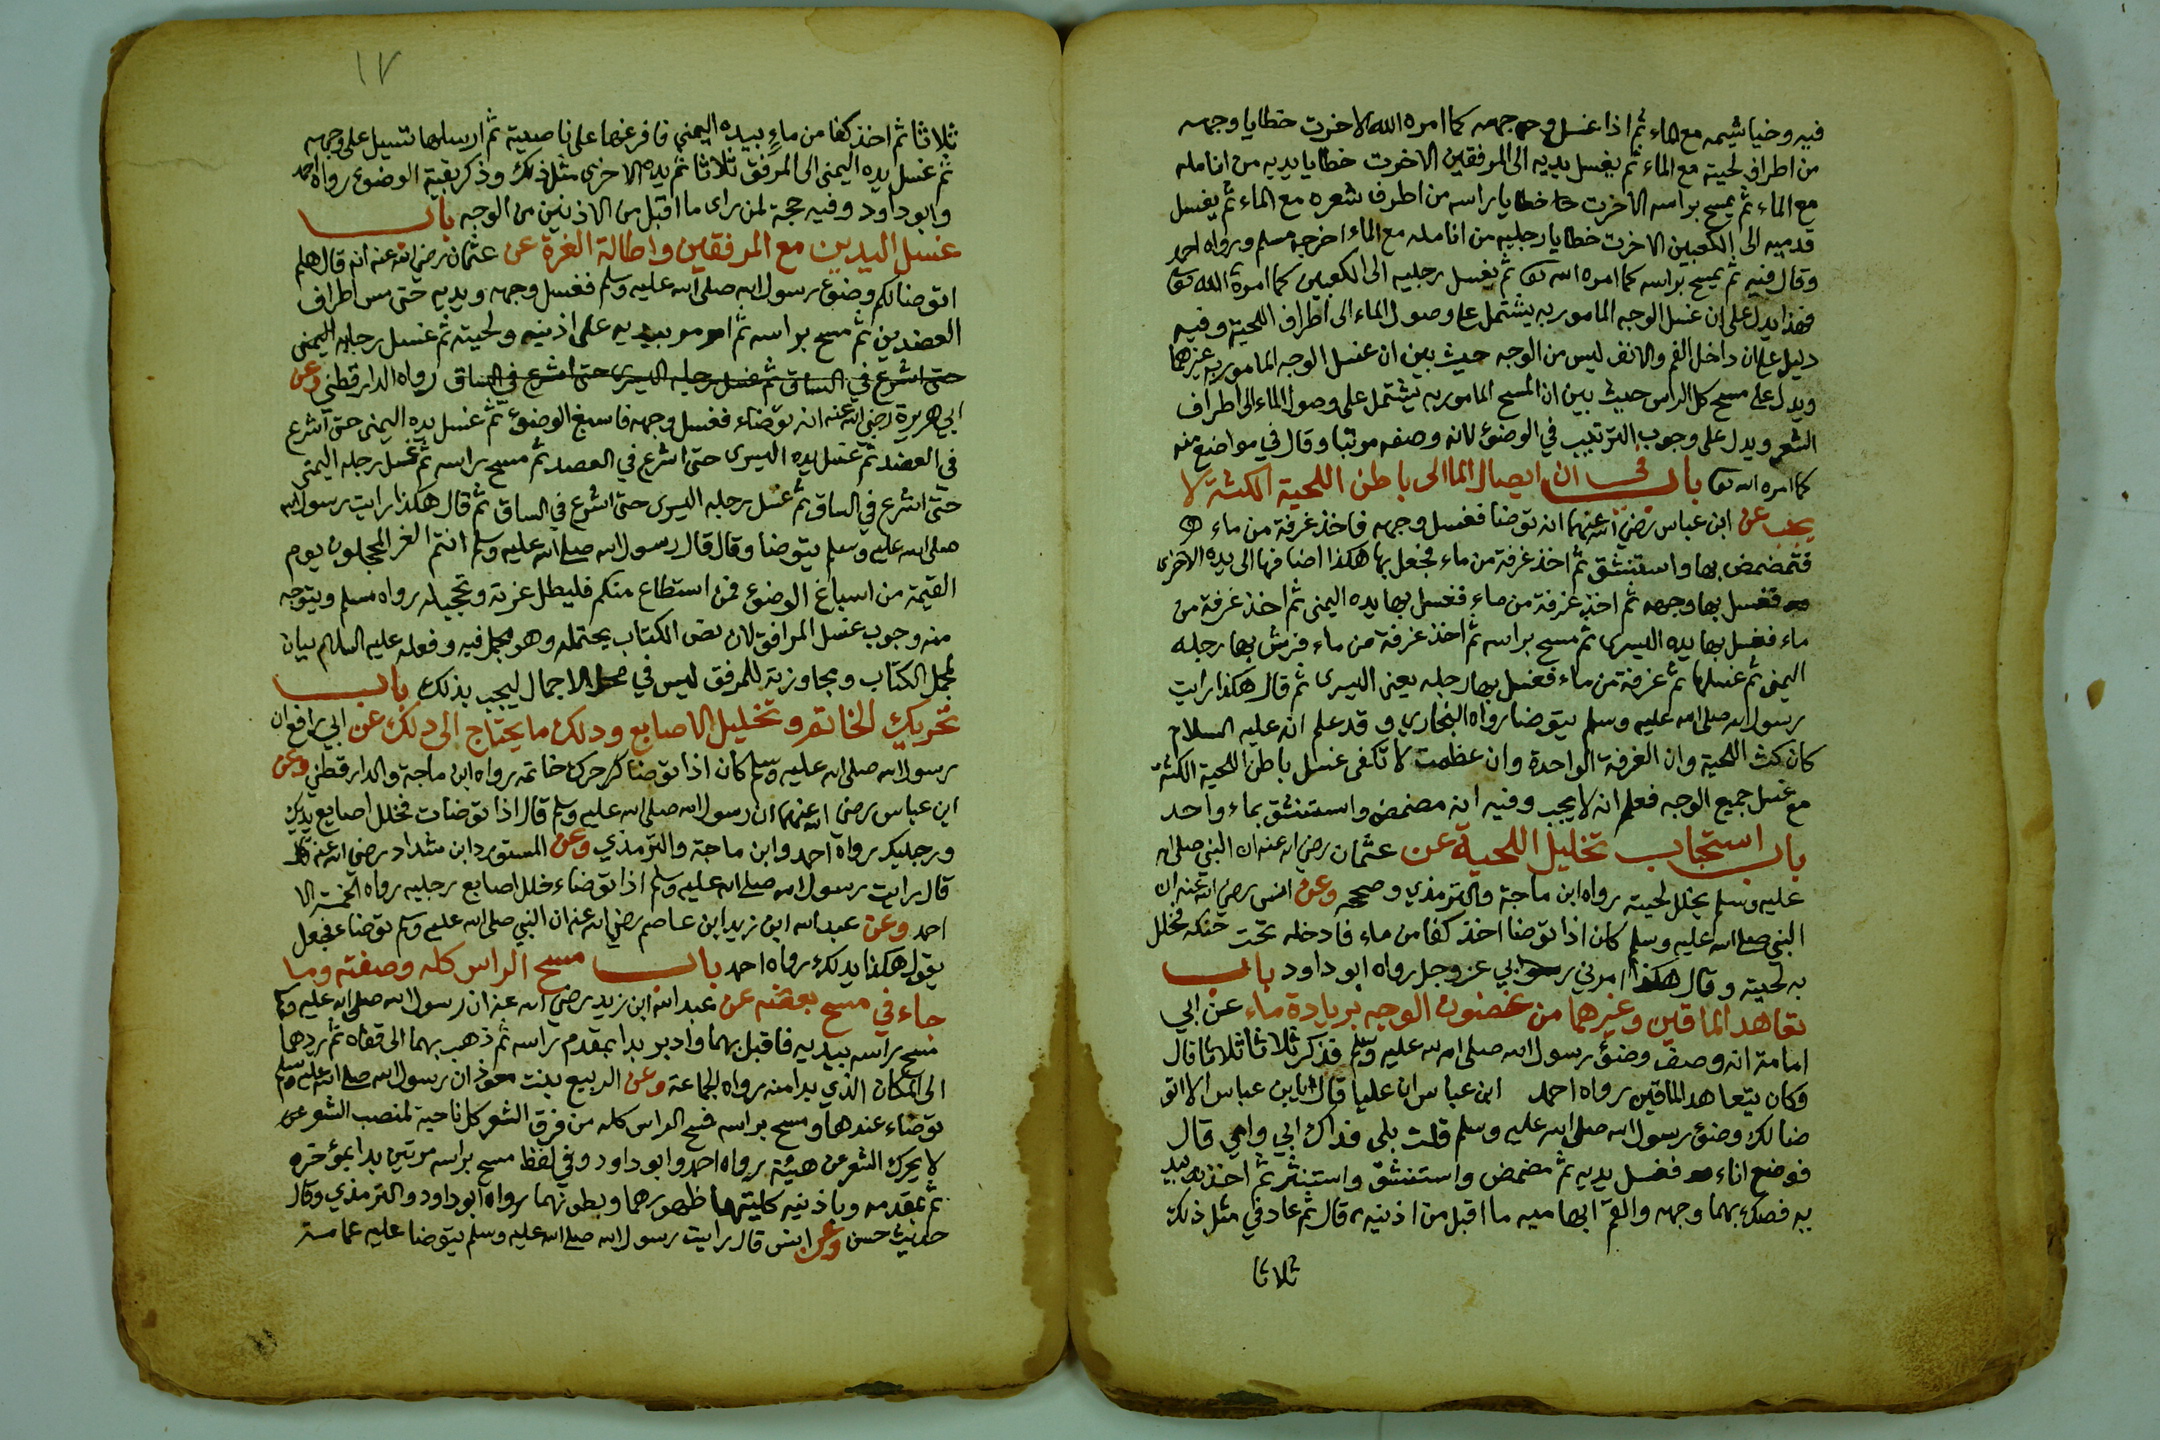 فيه وخياشيمه مع الماء ثم اذا غسل وجهه كما امره الله الا خرت خطايا وجهه
من اطراف لحيته مع الماء ثم يغسل يديه الى المرفقين الا خرت خطايا يديه من انامله
مع الماء ثم يمسح براسه الا خرت خطايا راسه من اطرف شعره مع الماء ثم يغسل
قدميه الى الكعبين الا خرت خطايا رجليه من انامله مع الماء اخرجه مسلم ورواه احمد
وقال فيه ثم يمسح براسه كما امره الله تعا ثم يغسل رجليه الى الكعبين كما امره الله تعا
فهذا يدل على ان غسل الوجه المامور به يشتمل على وصول الماء الى اطراف اللحية وفيه
دليل على ان داخل الفم والانف ليس من الوجه حيث بين ان غسل الوجه المامور به غيرهما
ويدل على مسح كل الراس حيث بين ان المسح المامور به يشتمل على وصول الماء الى اطراف
الشعر ويدل على وجوب الترتيب في الوضوء لانه وصفه مرتبا وقال في مواضع منه
كما امره الله تعا باب في ان ايصال الما الى باطن اللحية الكثة لا
يجب عن ابن عباس رضي الله عنهما انه توضا فغسل وجهه فاخذ غرفة من ماء
فتمضمض بها واستنشق ثم اخذ غرفة من ماء فجعل بها هكذا اضافها الى يده الاخرى
فغسل بها وجهه ثم اخذ غرفة من ماء فغسل بها يده اليمنى ثم اخذ غرفة من
ماء فغسل بها يده اليسرى ثم مسح براسه ثم اخذ غرفة من ماء فرش بها رجله
اليمنى ثم غسلها ثم غرفة من ماء فغسل بها رجله يعني اليسرى ثم قال هكذا رايت
رسول الله صلى الله عليه وسلم يتوضا رواه البخاري وقد علم انه عليه السلام
كان كث اللحية وان الغرفة الواحدة وان عظمت لا تكفي غسل باطن اللحية الكثة
مع غسل جميع الوجه فعلم انه لا يجب وفيه انه مضمض واستنشق بماء واحد
باب استحباب تخليل اللحية عن عثمان رضي الله عنه ان النبي صلى الله
عليه وسلم يخلل لحيته رواه ابن ماجة والترمذي وصححه وعن انس رضي الله عنه ان
النبي صلى الله عليه وسلم كان اذا توضا اخذ كفا من ماء فادخله تحت حنكه فخلل
به لحيته وقال هكذا امرني ربي عز وجل رواه ابو داود باب
تعاهد الماقين وغيرهما من غضون الوجه بزيادة ماء عن ابي
امامة انه وصف وضوء رسول الله صلى الله عليه وسلم فذكر ثلاثا ثلاثا قال
وكان يتعاهد الماقين رواه احمد ابن عباس ان عليا قال يا ابن عباس الا اتو
ضا لك وضوء رسول الله صلى الله عليه وسلم قلت بلى فداك ابي وامي قال
فوضع اناء فغسل يديه ثم مضمض واستنشق واستنثر ثم اخذ بيد
يه فصك بهما وجهه والقم ابهاميه ما اقبل من اذنيه قال ثم عاد في مثل ذلك
ثلاثا
١٧
ثلاثا ثم اخذ كفا من ماء بيده اليمنى فافرغها على ناصيته ثم ارسلها تسيل على وجهه
ثم غسل يده اليمنى الى المرفق ثلاثا ثم يده الاخرى مثل ذلك وذكر بقية الوضوء رواه احمد
وابو داود وفيه حجة لمن راى ما اقبل من الاذنين من الوجه باب
غسل اليدين مع المرفقين واطالة الغرة عن عثمان رضي الله عنه انه قال هلم
اتوضا لكم وضوء رسول الله صلى الله عليه وسلم فغسل وجهه ويديه حتى مس اطراف
العضدين ثم مسح براسه ثم امر بيديه على اذنيه ولحيته ثم غسل رجليه اليمنى
حتى اشرع في الساق ثم غسل رجله اليسرى حتى اشرع في الساق رواه الدارقطني وعن
ابي هريرة رضي الله عنه انه توضاء فغسل وجهه فاسبغ الوضوء ثم غسل يده اليمنى حتى اشرع
في العضد ثم غسل يده اليسرى حتى اشرع في العضد ثم مسح راسه ثم غسل رجله اليمنى
حتى اشرع في الساق ثم غسل رجله اليسرى حتى اشرع في الساق ثم قال هكذا رايت رسول الله
صلى الله عليه وسلم يتوضا وقال قال رسول الله صلى الله عليه وسلم انتم الغر المحجلون يوم
القيمة من اسباغ الوضوء فمن استطاع منكم فليطل غرته وتحجيله رواه مسلم ويتوجه
منه وجوب غسل المرافق لان نص الكتاب يحتمله وهو مجمل فيه وفعله عليه السلام بيان
لمجمل الكتاب ومجاوزته للمرفق ليس في محل الاجمال ليجب بذلك باب
تحريك الخاتم وتخليل الاصابع ودلك ما يحتاج الى دلك عن ابي رافع ان
رسول الله صلى الله عليه وسلم كان اذا توضا حرك خاتمه رواه ابن ماجة والدارقطني وعن
ابن عباس رضي الله عنهما ان رسول الله صلى الله عليه وسلم قال اذا توضات فخلل اصابع يديك
ورجليك رواه احمد وابن ماجة والترمذي وعن المستورد ابن شداد رضي الله عنه
قال رايت رسول الله صلى الله عليه وسلم اذا توضاء خلل اصابع رجليه رواه الخمسة الا
احمد وعن عبد الله ابن زيد ابن عاصم رضي الله عنه ان النبي صلى الله عليه وسلم توضا فجعل
يقول هكذا يدلك رواه احمد باب مسح الراس كله وصفته وما
جاء في مسح بعضه عن عبد الله ابن زيد رضي الله عنه ان رسول الله صلى الله عليه وسلم
مسح راسه بيديه فاقبل بهما وادبر بدا بمقدم راسه ثم ذهب بهما الى قفاه ثم ردهما
الى المكان الذي بدا منه رواه الجماعة وعن الربيع بنت معوذ ان رسول الله صلى الله عليه وسلم
توضاء عندها ومسح براسه فمسح الراس كله من فرق الشعر كل ناحية لمنصب الشعر
لا يحرك الشعر عن هيئته رواه احمد وابو داود وفي لفظ مسح براسه مرتين بدا بمؤخره
ثم بمقدمه وباذنيه كليتهما ظهورهما وبطونهما رواه ابو داود والترمذي وقال
حديث حسن وعن انس قال رايت رسول الله صلى الله عليه وسلم يتوضا عليه عمامة